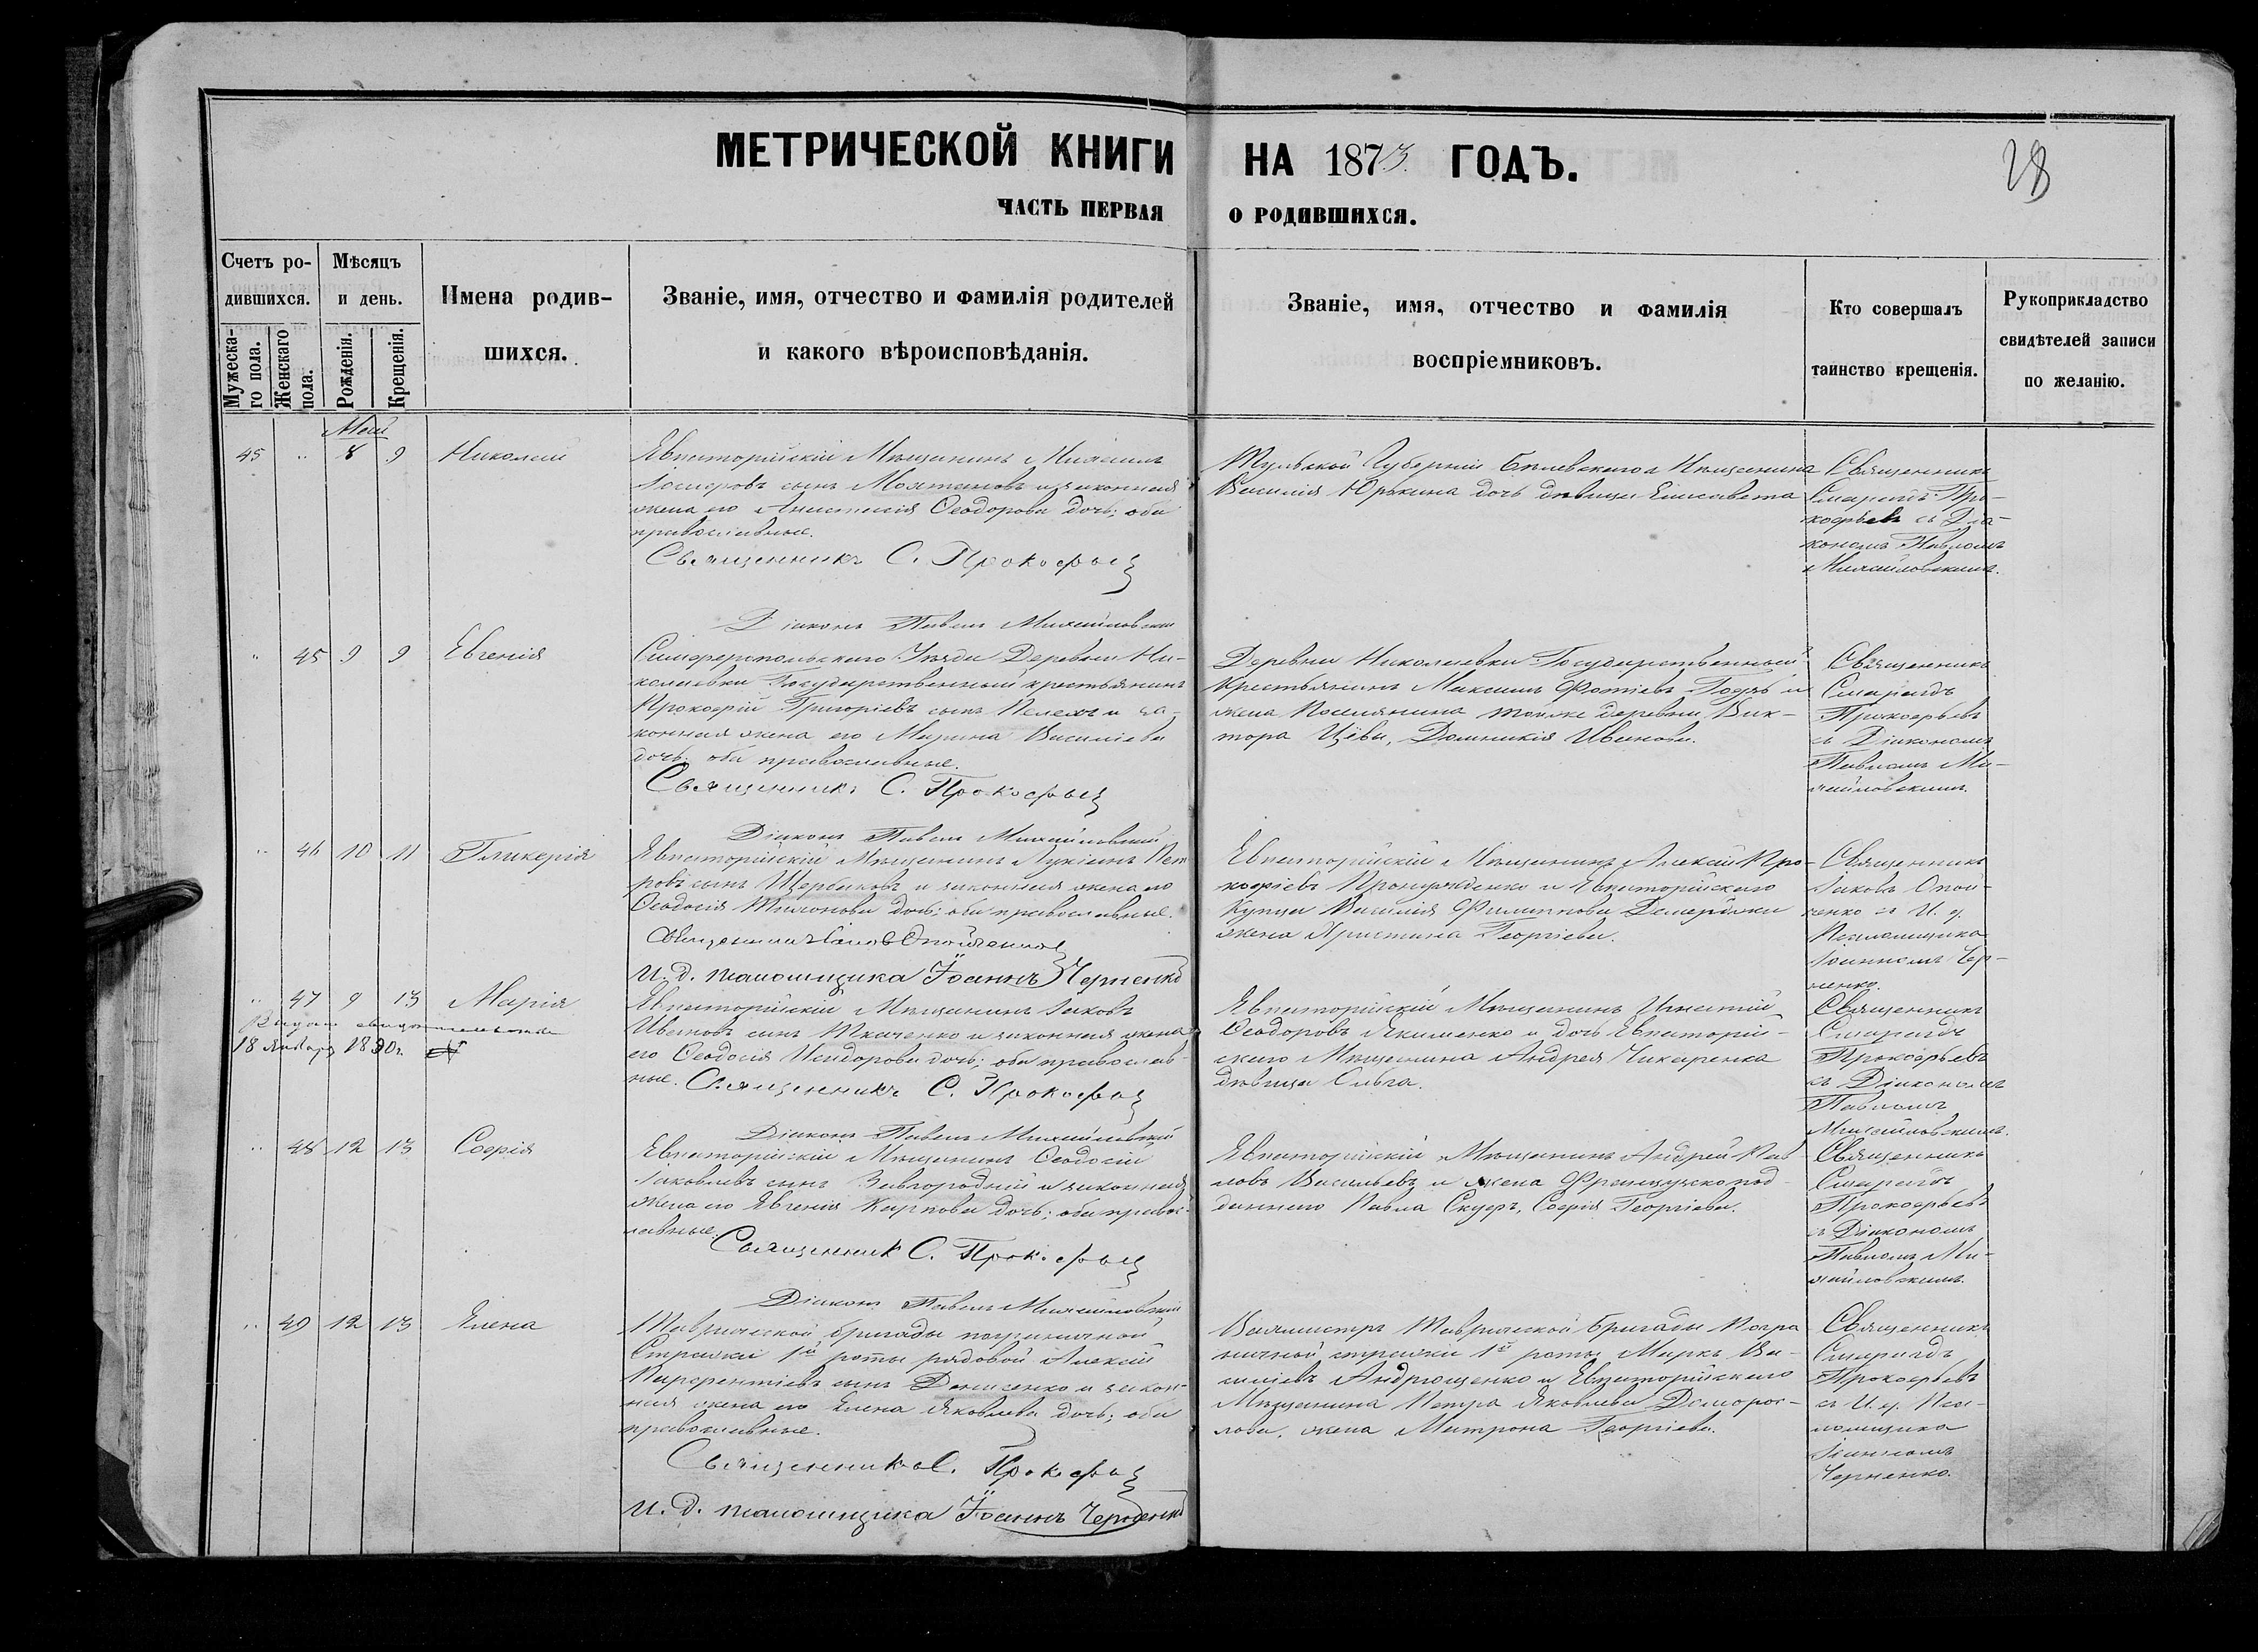 МЕТРИЧЕСКОЙ КНИГИ НА 1873 ГОДЪ.
28
ЧАСТЬ ПЕРВАЯ О РОДИВШИХСЯ.
Счетъ ро-
дившихся.
Мужеска-
го пола.
Женскаго
пола.
Мѣсяцъ
и день.
Рожденія.
Крещенія.
Имена родив-
шихся.
Званіе, имя, отчество и фамилія родителей
и какого вѣроисповѣданія.
Званіе, имя, отчество и фамилія
воспріемниковъ.
Кто совершалъ
таинство крещенія.
Рукоприкладство
свидѣтелей записи
по желанію.
Май
45 " 8 9 Николай
Евпаторійскій Мѣщанинъ Михаилъ
сынъ и законная
жена его Анастасія Ѳеодорова дочь; оба
православные.
Священникъ С. Прокофьев
Діаконъ Павелъ Михайловскій
Тульской Губерніи Бѣлевскаго Мѣщанина
Василія Юрькина дочь дѣвица Елисавета
Священникъ
Смарагдъ Про-
кофьевъ съ Діа-
кономъ Павломъ
Михайловскимъ.
" 45 9 9 Евгенія
Симферопольскаго Уѣзда Деревни Ни-
колаевки Государственный крестьянинъ
Прокофій Григоріевъ сынъ и за-
конная жена его Марина Василіева
дочь; оба православные.
Священникъ С. Прокофьев
Діаконъ Павелъ Михайловскій
Деревни Николаевки Государственный
Крестьянинъ Максимъ Фотіевъ и
жена Поселянина тойже деревни Вик-
тора Цівы, Домникія Иванова.
Священникъ
Смарагдъ
Прокофьевъ
съ Діакономъ
Павломъ Ми-
хайловскимъ.
" 46 10 11 Гликерія
Евпаторійскій Мѣщанинъ Лукіанъ Пет
ровъ сынъ Щербаковъ и законная жена его
Ѳеодосія Тихонова дочь; оба православные.
Священникъ Іаковъ
И. д. псаломщика Іоаннъ Черненко
Евпаторійскій Мѣщанинъ Алексій Про-
кофіевъ и Евпаторійскаго
Купца Василія Филиппова
жена Христина Георгіева.
Священникъ
Іаковъ Опой-
ченко съ И. д.
Псаломщика
Іоанномъ Чер-
ненко.
" 47 9 13 Марія
Выдано свидѣтельство
18 Января 1890 г.
Евпаторійскій Мѣщанинъ Іаковъ
Ивановъ сынъ Ткаченко и законная жена
его Ѳеодосія Исидорова дочь; оба православ-
ные. Священникъ С. Прокофьев
Діаконъ Павелъ Михайловскій
Евпаторійскій Мѣщанинъ Игнатій
Ѳеодоровъ Якименко и дочь Евпаторій-
скаго Мѣщанина Андрея Чикаренка
дѣвица Ольга.
Священникъ
Смарагдъ
Прокофьевъ
съ Діакономъ
Павломъ
Михайловскимъ.
" 48 12 13 Софія
Евпаторійскій Мѣщанинъ Ѳеодосій
Іаковлевъ сынъ Завгородній и законная
жена его Евгенія Карпова дочь; оба правос-
лавные.
Священникъ С. Прокофьев
Діаконъ Павелъ Михайловскій
Евпаторійскій Мѣщанинъ Андрей Пав
ловъ Васильевъ и жена Французскопод
даннаго Павла Скуфъ, Софія Георгіева.
Священникъ
Смарагдъ
Прокофьевъ
съ Діакономъ
Павломъ Ми-
хайловскимъ.
" 49 12 13 Елена
Таврической бригады пограничной
Стражи 1й роты рядовой Алексій
Парфентіевъ сынъ Денисенко и закон-
ная жена его Елена Яковлева дочь; оба
православные.
Священникъ С. Прокофьев
И. д. псаломщика Іоаннъ Черненко
Вахмистръ Таврической бригады Погра
ничной стражи 1й роты Маркъ Ва-
силіевъ Андрющенко и Евпаторійскаго
Мѣщанина Петра Яковлева Доморос-
лова, жена Матрона Георгіева.
Священникъ
Смарагдъ
Прокофьевъ
съ И. д. Пса-
ломщика
Іоанномъ
Черненко.